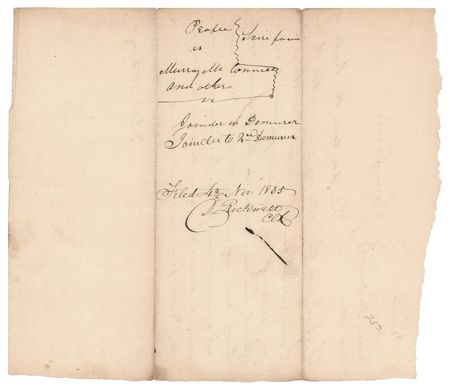 People
vs
Scire facias
Murray McConnell
and others
Joinder in Demurrer
Joinder to 2nd Demurrer
Filed 4th Nov: 1835
D. Rockwell
Clk